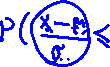 P( (x - μ)/σ ≤